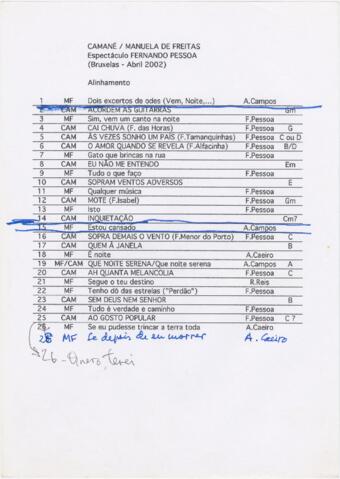 CAMANÉ / MANUELA DE FREITAS
Espectáculo FERNANDO PESSOA
(Bruxelas - Abril 2002)
Alinhamento
1 MF Dois excertos de odes (Vem, Noite,...) A.Campos
2 CAM ACORDEM AS GUITARRAS Gm
3 MF Sim, vem um canto na noite F.Pessoa
4 CAM CAI CHUVA (F. das Horas) F.Pessoa G
5 CAM ÀS VEZES SONHO UM PAÍS (F.Tamanquinhas) F.Pessoa C ou D
6 CAM O AMOR QUANDO SE REVELA (F.Alfacinha) F.Pessoa B/D
7 MF Gato que brincas na rua F.Pessoa
8 CAM EU NÃO ME ENTENDO Em
9 MF Tudo o que faço F.Pessoa
10 CAM SOPRAM VENTOS ADVERSOS E
11 MF Qualquer música F.Pessoa
12 CAM MOTE (F.Isabel) F.Pessoa Gm
13 MF Isto F.Pessoa
14 CAM INQUIETAÇÃO Cm7
15 MF Estou cansado A.Campos
16 CAM SOPRA DEMAIS O VENTO (F.Menor do Porto) F.Pessoa C
17 CAM QUEM À JANELA B
18 MF É noite A.Caeiro
19 MF/CAM QUE NOITE SERENA/Que noite serena A.Campos A
20 CAM AH QUANTA MELANCOLIA F.Pessoa C
21 MF Segue o teu destino R.Reis
22 MF Tenho dó das estrelas ("Perdão") F.Pessoa
23 CAM SEM DEUS NEM SENHOR B
24 MF Tudo é verdade e caminho F.Pessoa
25 CAM AO GOSTO POPULAR F.Pessoa C ?
26 MF Se eu pudesse trincar a terra toda A.Caeiro
28 MF Se depois de eu morrer A. Caeiro
26 - Quero, terei